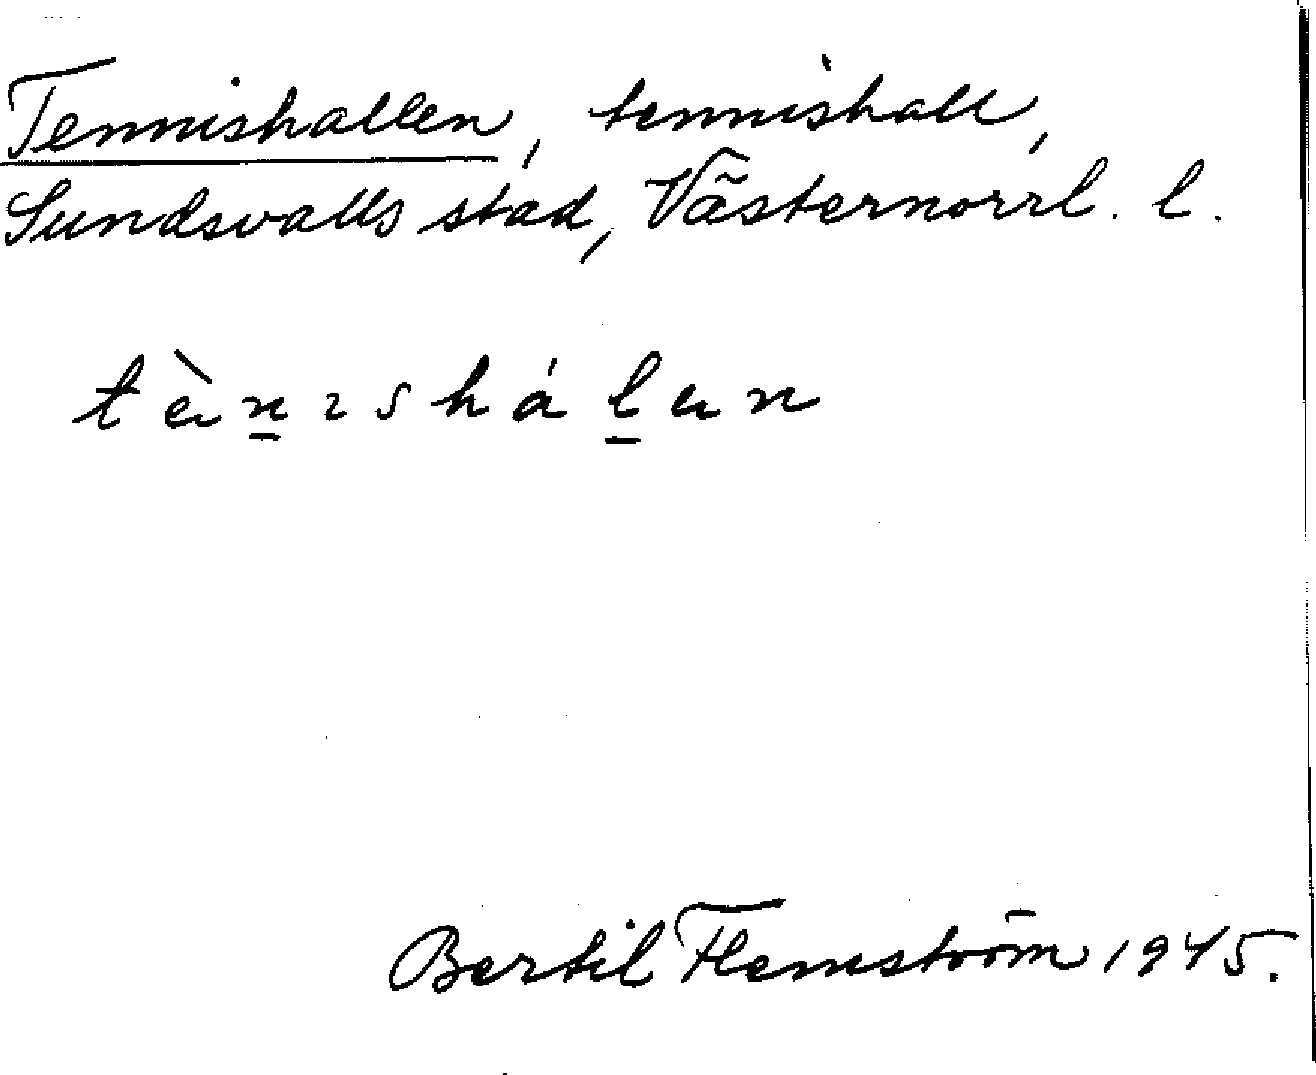 Tennishallen, tennishall,
Sundsvalls stad, Västernorrl. l.
tènıshálen
Bertil Flemström 1945.